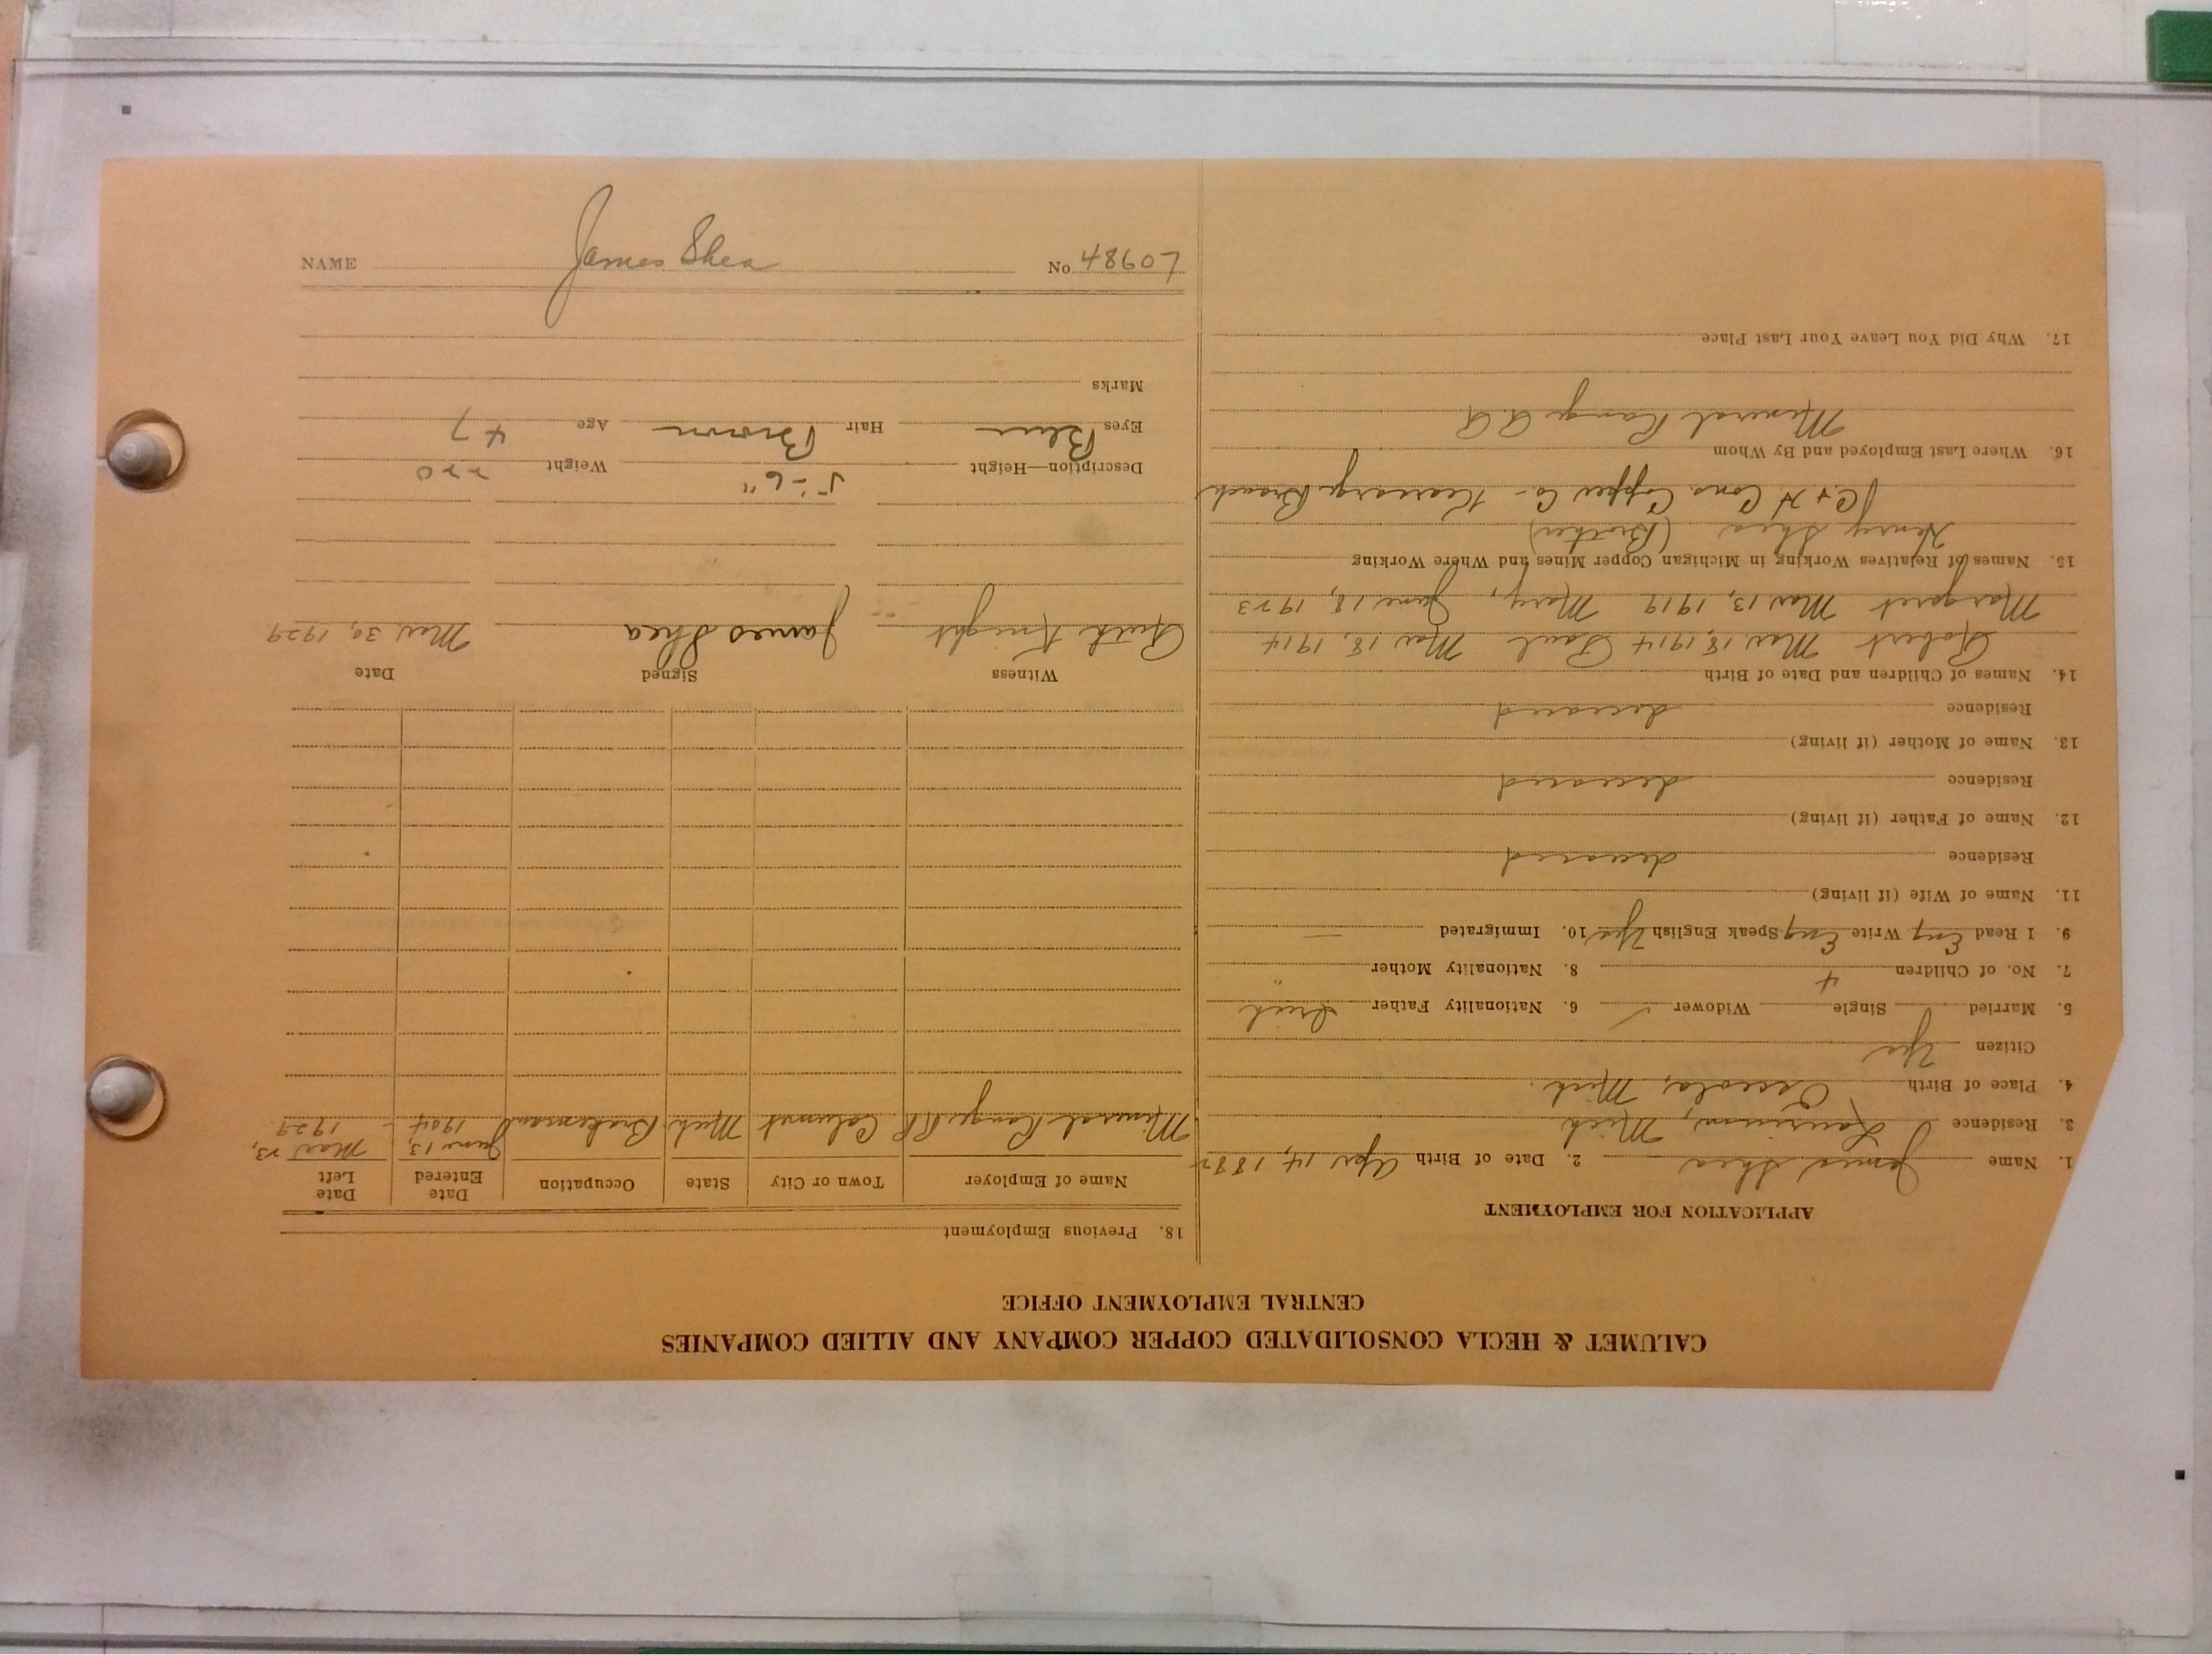 CALUMET & HECLA CONSOLIDATED COPPER COMPANY AND ALLIED COMPANIES
CENTRAL EMPLOYMENT OFFICE
APPLICATION FOR EMPLOYMENT
1. Name James Shea 2. Date of Birth Apr 14, 1882
3. Residence Laurium, Mich
4. Place of Birth Osceola, Mich.
Citizen Yes
5. Married Single Widower ✓ 6. Nationality Father Irish
7. No. of Children 4 8. Nationality Mother "
9. I Read Eng Write Eng Speak English Yes 10. Immigrated —
11. Name of Wife (if living)
Residence deceased
12. Name of Father (if living)
Residence deceased
13. Name of Mother (if living)
Residence deceased
14. Names of Children and Date of Birth
Robert Mar 18, 1914 Paul Mar 18, 1914
Margaret Mar 13, 1919 Mary, June 18, 1923
15. Names of Relatives Working in Michigan Copper Mines and Where Working
Henry Shea (Brother)
C & H Cons. Copper Co - Kearsarge Branch
16. Where Last Employed and By Whom
Mineral Range R.R.
17. Why Did You Leave Your Last Place
18. Previous Employment
Name of Employer Town or City State Occupation Date Entered Date Left
Mineral Range RR Calumet Mich Brakeman June 13, 1904 Mar 23, 1929
Witness Signed Date
Ruth Knight James Shea Mar. 30, 1929
Description—Height 5'-6" Weight 220
Eyes Blue Hair Brown Age 47
Marks
NAME James Shea No. 48607